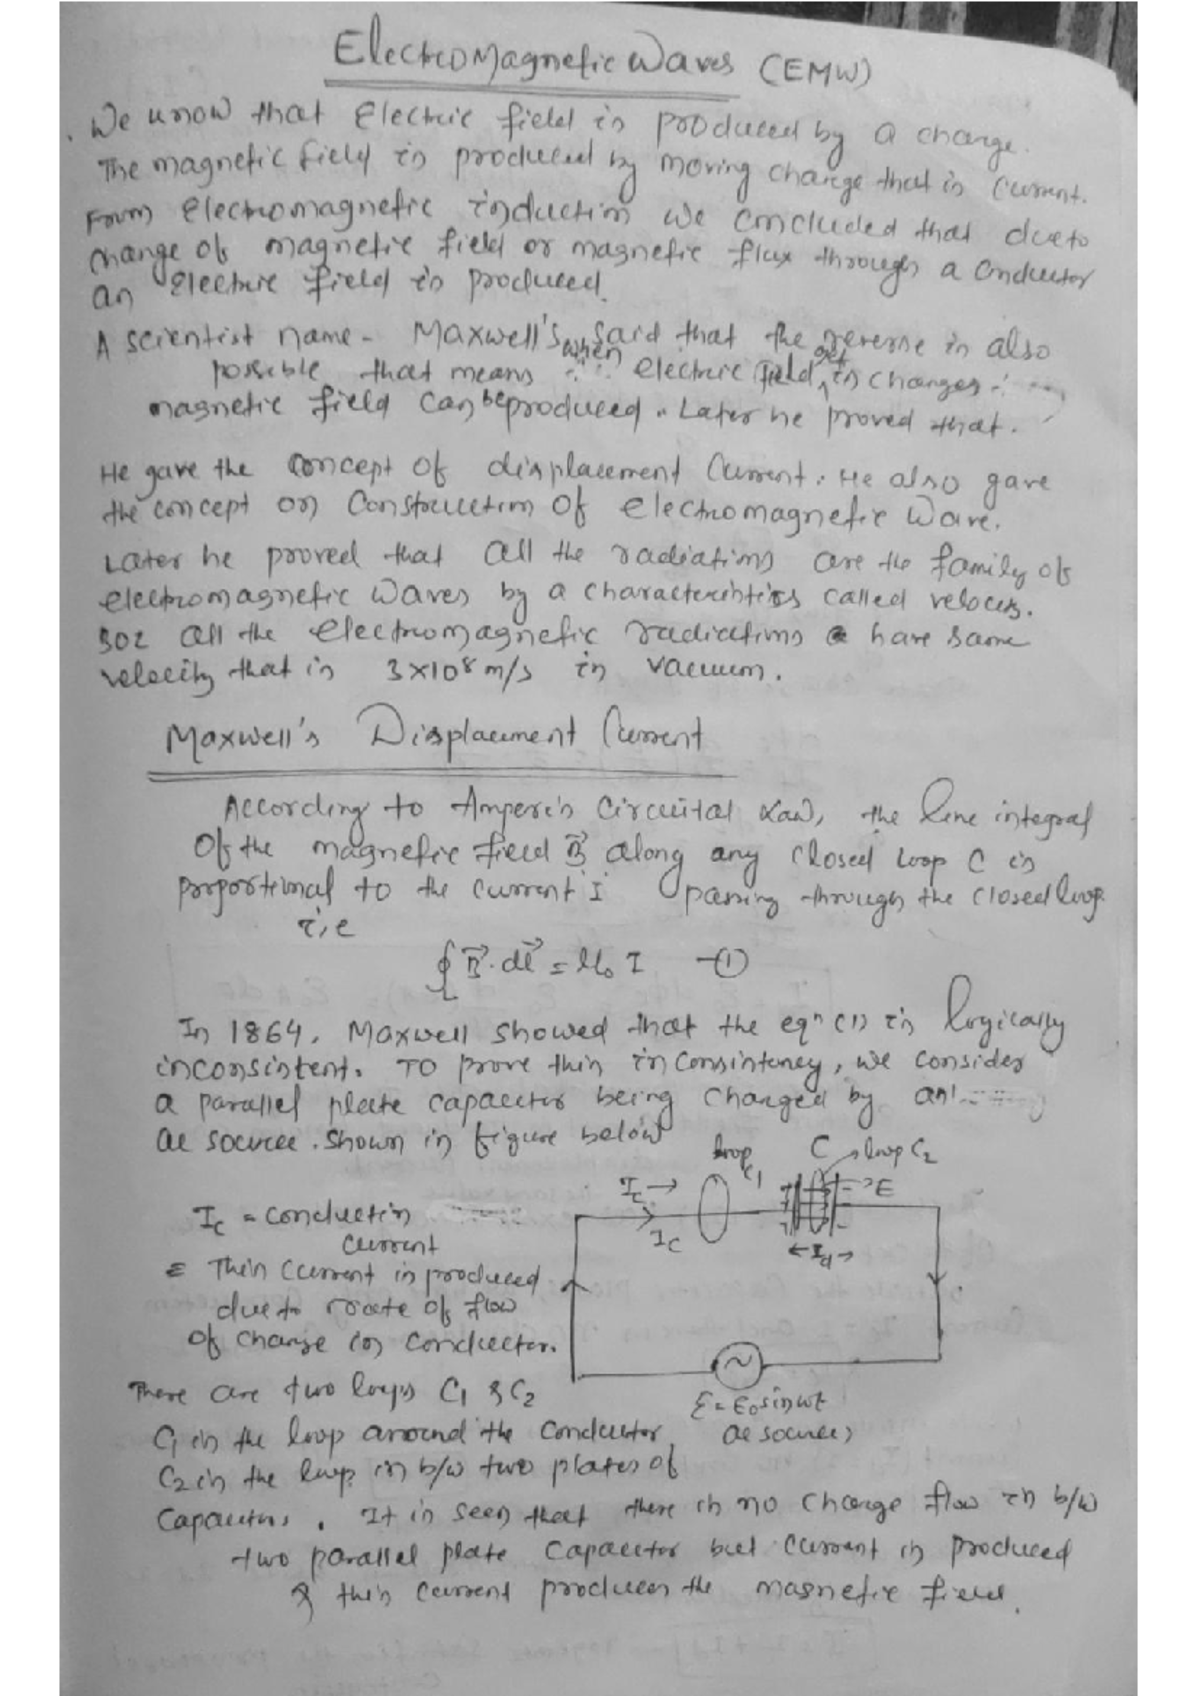 ElectroMagnetic Waves (EMW)
. We know that Electric field is produced by a charge.
The magnetic field is produced by moving charge that is Current.
From Electromagnetic induction we concluded that due to
change of magnetic field or magnetic flux through a Conductor
an Electric field is produced.
A scientist name - Maxwell's said that the reverse is also
possible that means when electric field get is changes
magnetic field can be produced. Later he proved that.
He gave the concept of displacement Current. He also gave
the concept on Construction Of electromagnetic Wave.
Later he proved that all the radiations are the family of
electromagnetic Waves by a characteristics called velocity.
Boz all the electromagnetic radiations have same
velocity that is 3×10⁸ m/s in vacuum.
Maxwell's Displacement Current
According to Ampere's Circuital Law, the line integral
Of the magnetic field B⃗ along any closed loop C is
proportional to the current I passing through the closed loop.
i.e
∮ B⃗. dl⃗ = μ₀ I —①
In 1864, Maxwell showed that the eqⁿ (1) is logically
inconsistent. To prove this inconsistency, we consider
a parallel plate capacitor being charged by an
ac source. Shown in figure below
loop C₁ C → loop C₂
I_c → E
I_c ← I_d →
I_c = conduction
current
= This current is produced
due to rate of flow
of charge in conductor.
There are two loops C₁ & C₂
ε = ε₀ sin ωt
C₁ is the loop around the conductor
ac source)
C₂ is the loop in b/w two plates of
Capacitors. It is seen that there is no charge flow in b/w
two parallel plate capacitor but current is produced
& this current produces the magnetic field.